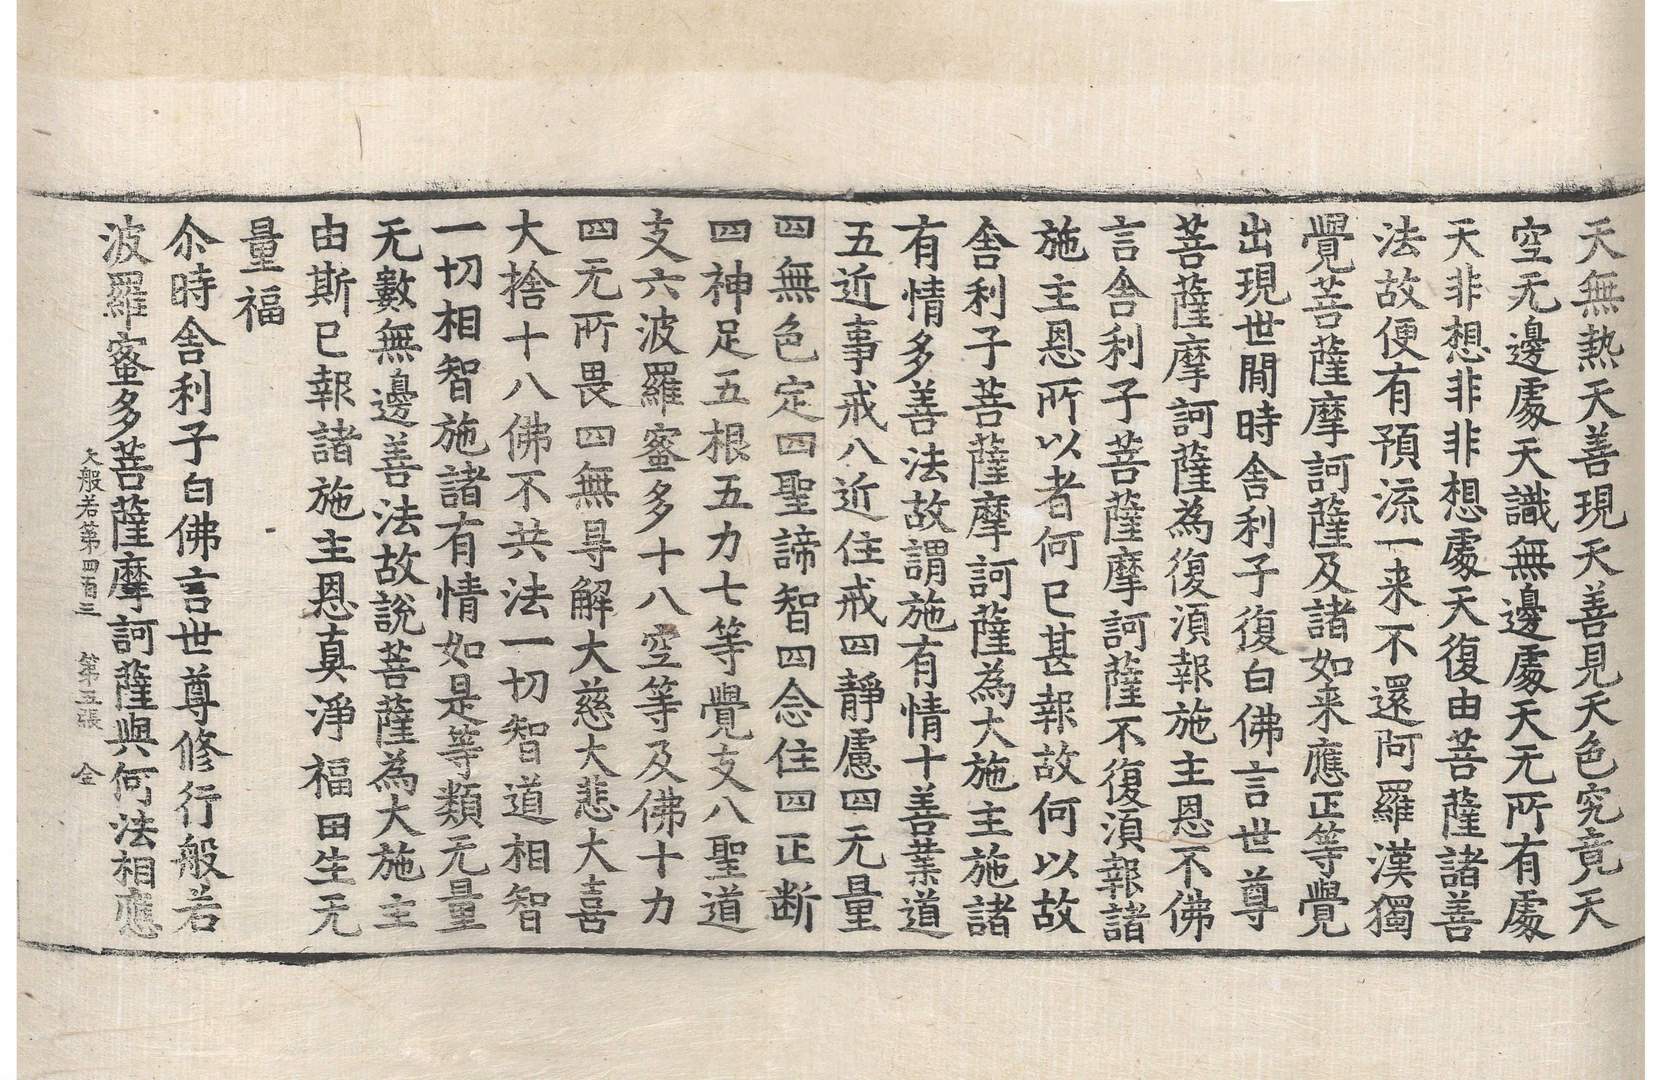 天無熱天善現天善見天色究竟天
空无邊處天識無邊處天无所有處
天非想非非想處天復由菩薩諸善
法故便有預流一来不還阿羅漢獨
覺菩薩摩訶薩及諸如来應正等覺
出現世間時舍利子復白佛言世尊
菩薩摩訶薩為復湏報施主恩不佛
言舍利子菩薩摩訶薩不復湏報諸
施主恩所以者何已甚報故何以故
舍利子菩薩摩訶薩為大施主施諸
有情多善法故謂施有情十善業道
五近事戒八近住戒四靜慮四无量
四無色定四聖諦智四念住四正断
四神足五根五力七等覺支八聖道
支六波羅蜜多十八空等及佛十力
四无所畏四無㝵解大慈大悲大喜
大捨十八佛不共法一切智道相智
一切相智施諸有情如是等類无量
无數無邊善法故說菩薩為大施主
由斯已報諸施主恩真淨福田生无
量福
尒時舍利子白佛言世尊修行般若
波羅蜜多菩薩摩訶薩與何法相應
大般若第四百三 第五張 金